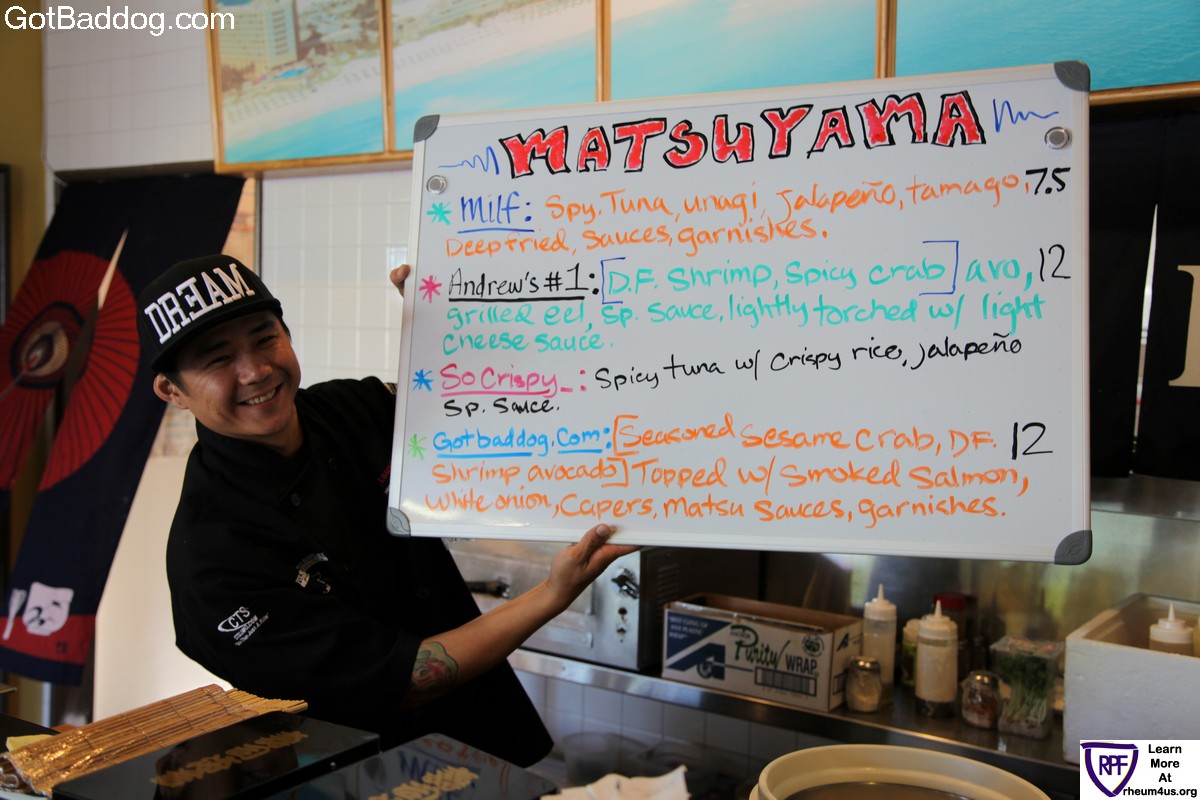 GotBaddog.com
MATSUYAMA
Milf: Spy. Tuna, unagi, Jalapeño, tamago, 7.5
Deepfried, Sauces, garnishes.
Andrew's #1: [D.F. Shrimp, Spicy crab] avo, 12
grilled eel, Sp. Sauce, lightly torched w/ light
cheese sauce.
So Crispy_: Spicy tuna w/ Crispy rice, jalapeño
Sp. Sauce.
Gotbaddog.com: [Seasoned Sesame Crab, D.F. 12
Shrimp, avocado] Topped w/ Smoked Salmon,
White onion, Capers, Matsu Sauces, garnishes.
DREAM
CTS
Purity
WRAP
RPF
Learn
More
At
rheum4us.org